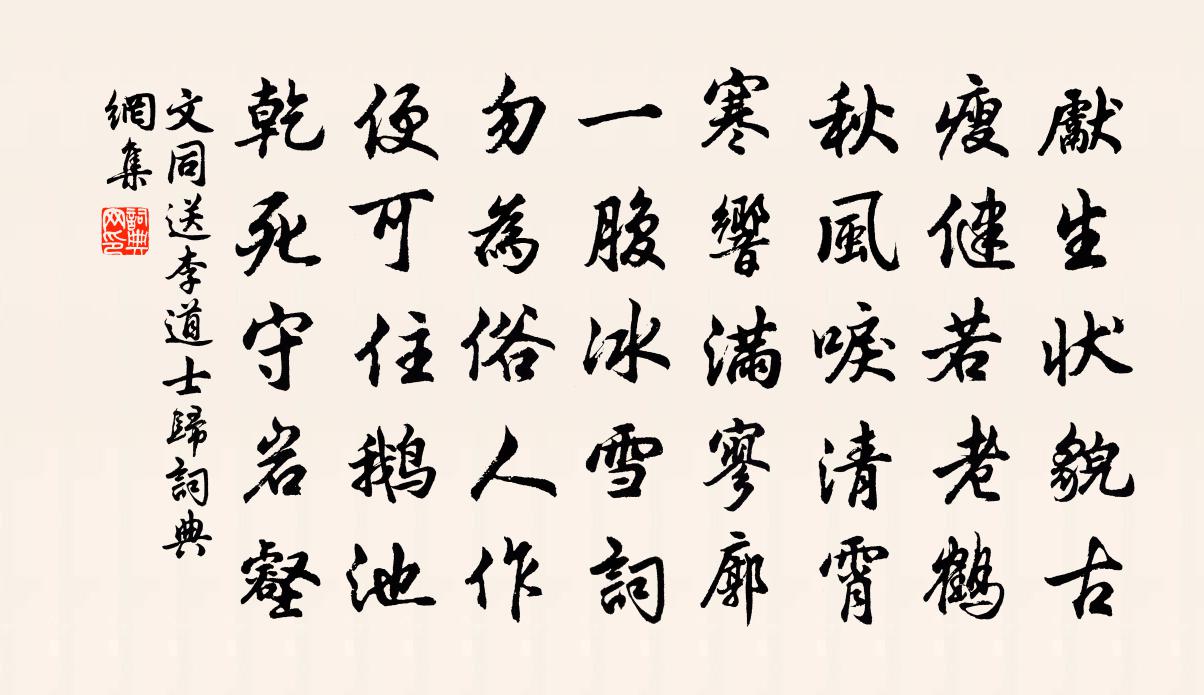 獻生状貌古
瘦健若老鶴
秋風唳清霄
寒響滿寥廓
一腹冰雪詞
勿為俗人作
便可住鵝池
乾死守岩壑
文同送李道士歸詞典
網集
詞典
网印